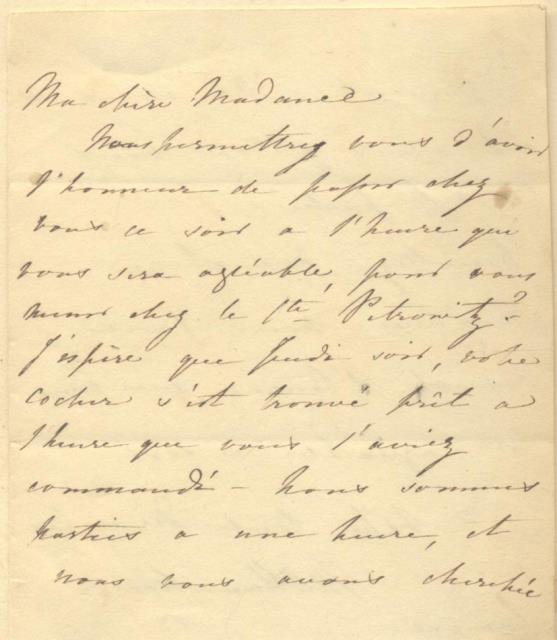 Ma chère Madame
Nous permettrez vous d'avoir
l'honneur de passer chez
vous ce soir a l'heure qui
vous sera agréable, pour vous
mener chez le Cte Petrowitz?-
J'espère que Jeudi soir, votre
cocher s'est trouvé prêt a
l'heure que vous l'aviez
commandé - Nous sommes
parties a une heure, et
nous vous avons cherchée